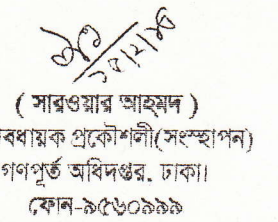 ( সারওয়ার আহমদ )
বধায়ক প্রকৌশলী(সংস্হাপন)
গণপূর্ত অধিদপ্তর, ঢাকা।
ফোন-৯৫৬০৯৯৯